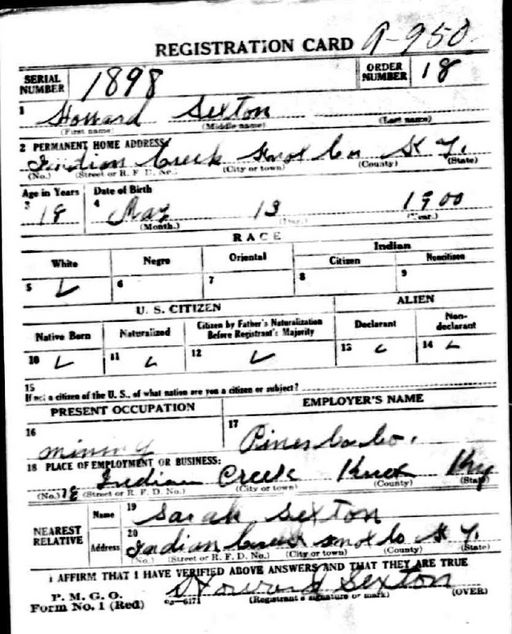 REGISTRATION CARD A-950
SERIAL NUMBER 1898 ORDER NUMBER 18
1 Howard Sexton
(First name) (Middle name) (Last name)
2 PERMANENT HOME ADDRESS:
Indian Creek Knox Co K Y.
(No.) (Street or R. F. D. No.) (City or town) (County) (State)
Age in Years Date of Birth
3 18 4 May 13 1900
(Month.) (Day.) (Year.)
RACE
White Negro Oriental Indian
Citizen Noncitizen
5 6 7 8 9
U. S. CITIZEN ALIEN
Native Born Naturalized Citizen by Father's Naturalization Before Registrant's Majority Declarant Non-declarant
10 11 12 13 14
15
If not a citizen of the U. S., of what nation are you a citizen or subject?
PRESENT OCCUPATION EMPLOYER'S NAME
16 17
Mining Co.
18 PLACE OF EMPLOYMENT OR BUSINESS:
Indian Creek Knox Ky
(No.) (Street or R. F. D. No.) (City or town) (County) (State)
NEAREST RELATIVE
Name 19 Sarah Sexton
Address 20 Indian Creek Knox Co K Y.
(No.) (Street or R. F. D. No.) (City or town) (County) (State)
I AFFIRM THAT I HAVE VERIFIED ABOVE ANSWERS AND THAT THEY ARE TRUE
P. M. G. O.
Form No. 1 (Red) 03-6171 Howard Sexton
(Registrant's signature or mark) (OVER)